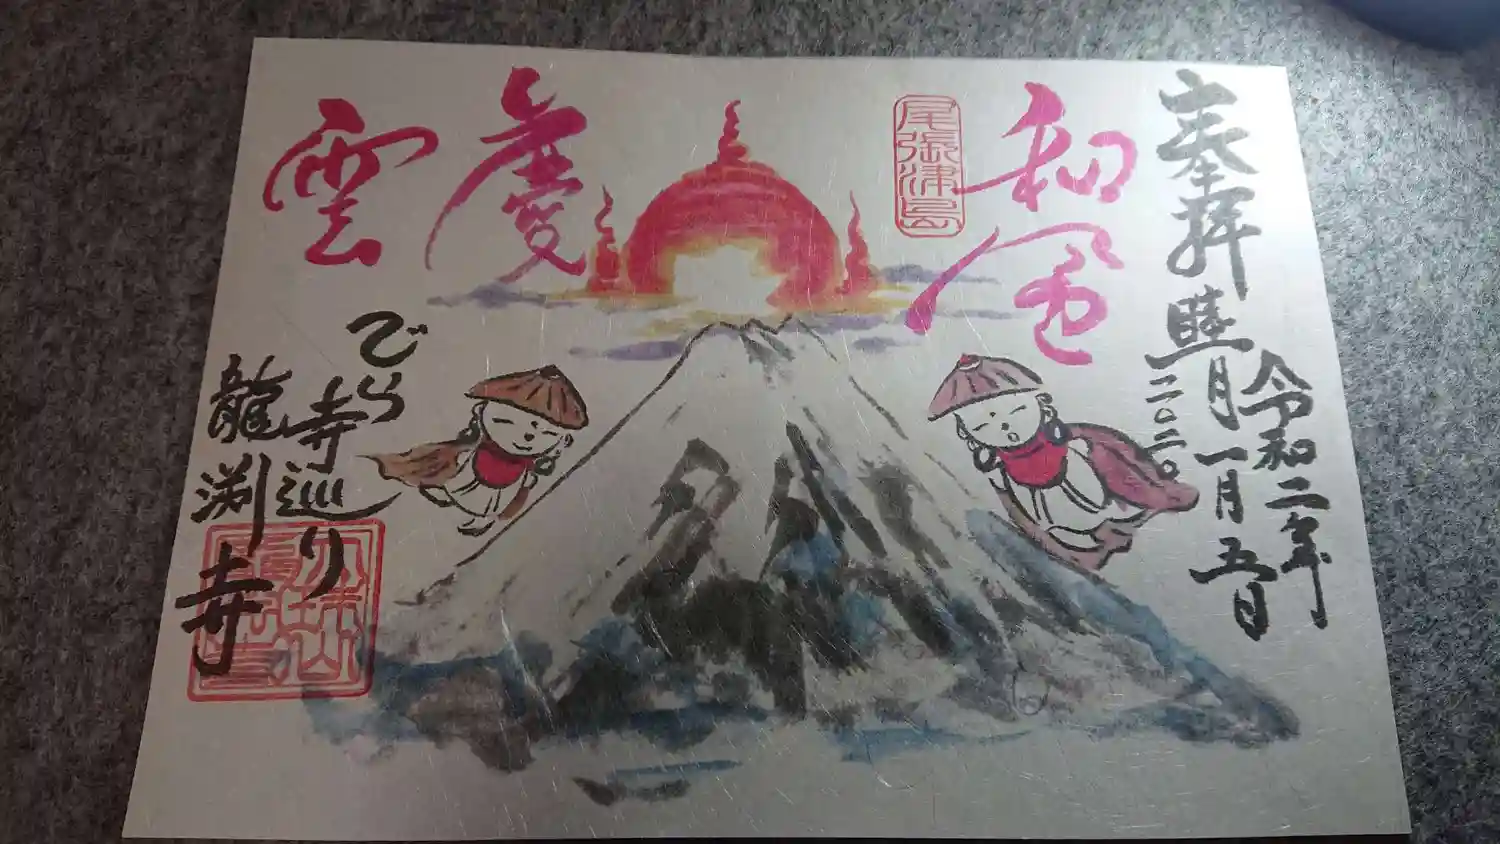 奉拝
令和二年
睦月
一月五日
二〇二〇
和風
尾張津島
慶
雲
でら
寺巡り
龍渕寺